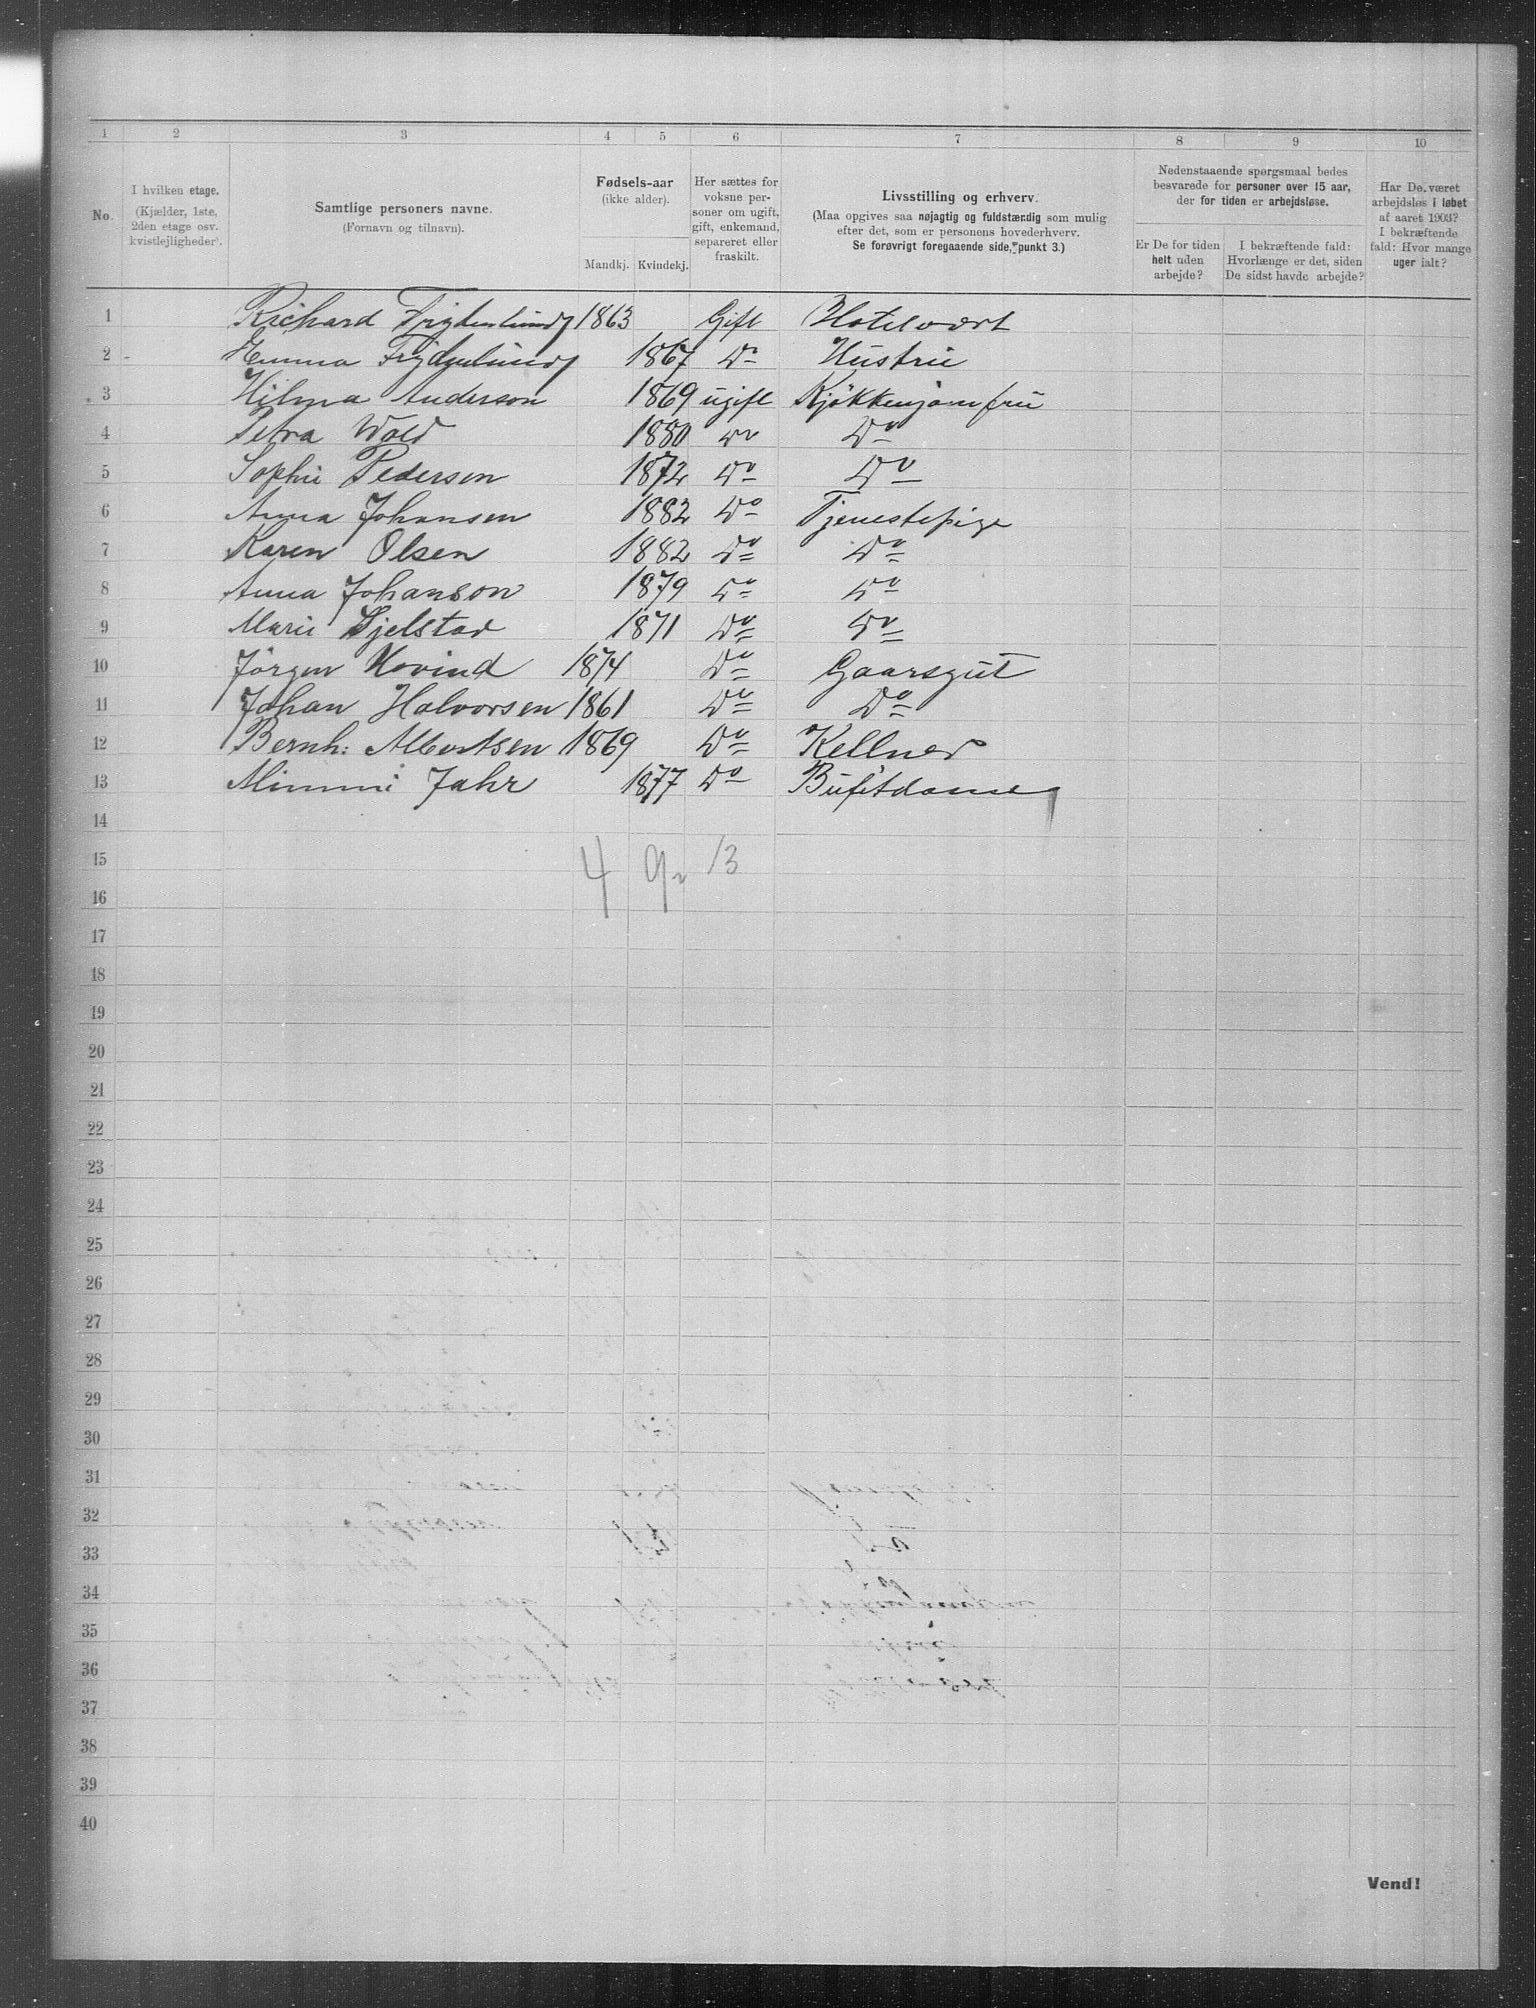 1 2 3 4 5 6 7 8 9 10
No. I hvilken etage. (Kjælder, 1ste, 2den etage osv. kvistlejligheder). Samtlige personers navne. (Fornavn og tilnavn). Fødsels-aar (ikke alder). Mandkj. Kvindekj. Her sættes for voksne personer om ugift, gift, enkemand, separeret eller fraskilt. Livsstilling og erhverv. (Maa opgives saa nøjagtig og fuldstændig som mulig efter det, som er personens hovederhverv. Se forøvrigt foregaaende side, punkt 3.) Nedenstaaende spørgsmaal bedes besvarede for personer over 15 aar, der for tiden er arbejdsløse. Er De for tiden helt uden arbejde? I bekræftende fald: Hvorlænge er det, siden De sidst havde arbejde? Har De været arbejdsløs i løbet af aaret 1903? I bekræftende fald: Hvor mange uger ialt?
1 Richard Frydenlund 1863 Gift Hotelvært
2 Hemma Frydenlund 1867 Do Hustru
3 Hilma Anderson 1869 ugift Kjøkkenjomfru
4 Petra Wold 1880 Do Do
5 Sophie Pedersen 1872 Do Do
6 Anna Johansen 1882 Do Tjenestepige
7 Karen Olsen 1882 Do Do
8 Anna Johanson 1879 Do Do
9 Marie Gjelstad 1871 Do Do
10 Jörgen Hovind 1874 Do Gaarsgut
11 Johan Halvorsen 1861 Do Do
12 Bernh: Albertsen 1869 Do Kellner
13 Mimmi Jahr 1877 Do Bufetdame
14
15 4 9 13
16
17
18
19
20
21
22
23
24
25
26
27
28
29
30
31
32
33
34
35
36
37
38
39
40
Vend!